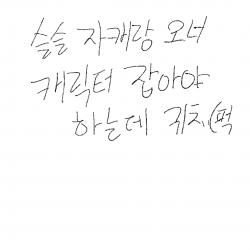 슬슬 자캐랑 오너
캐릭터 잡아야
하는데 귀치(퍽